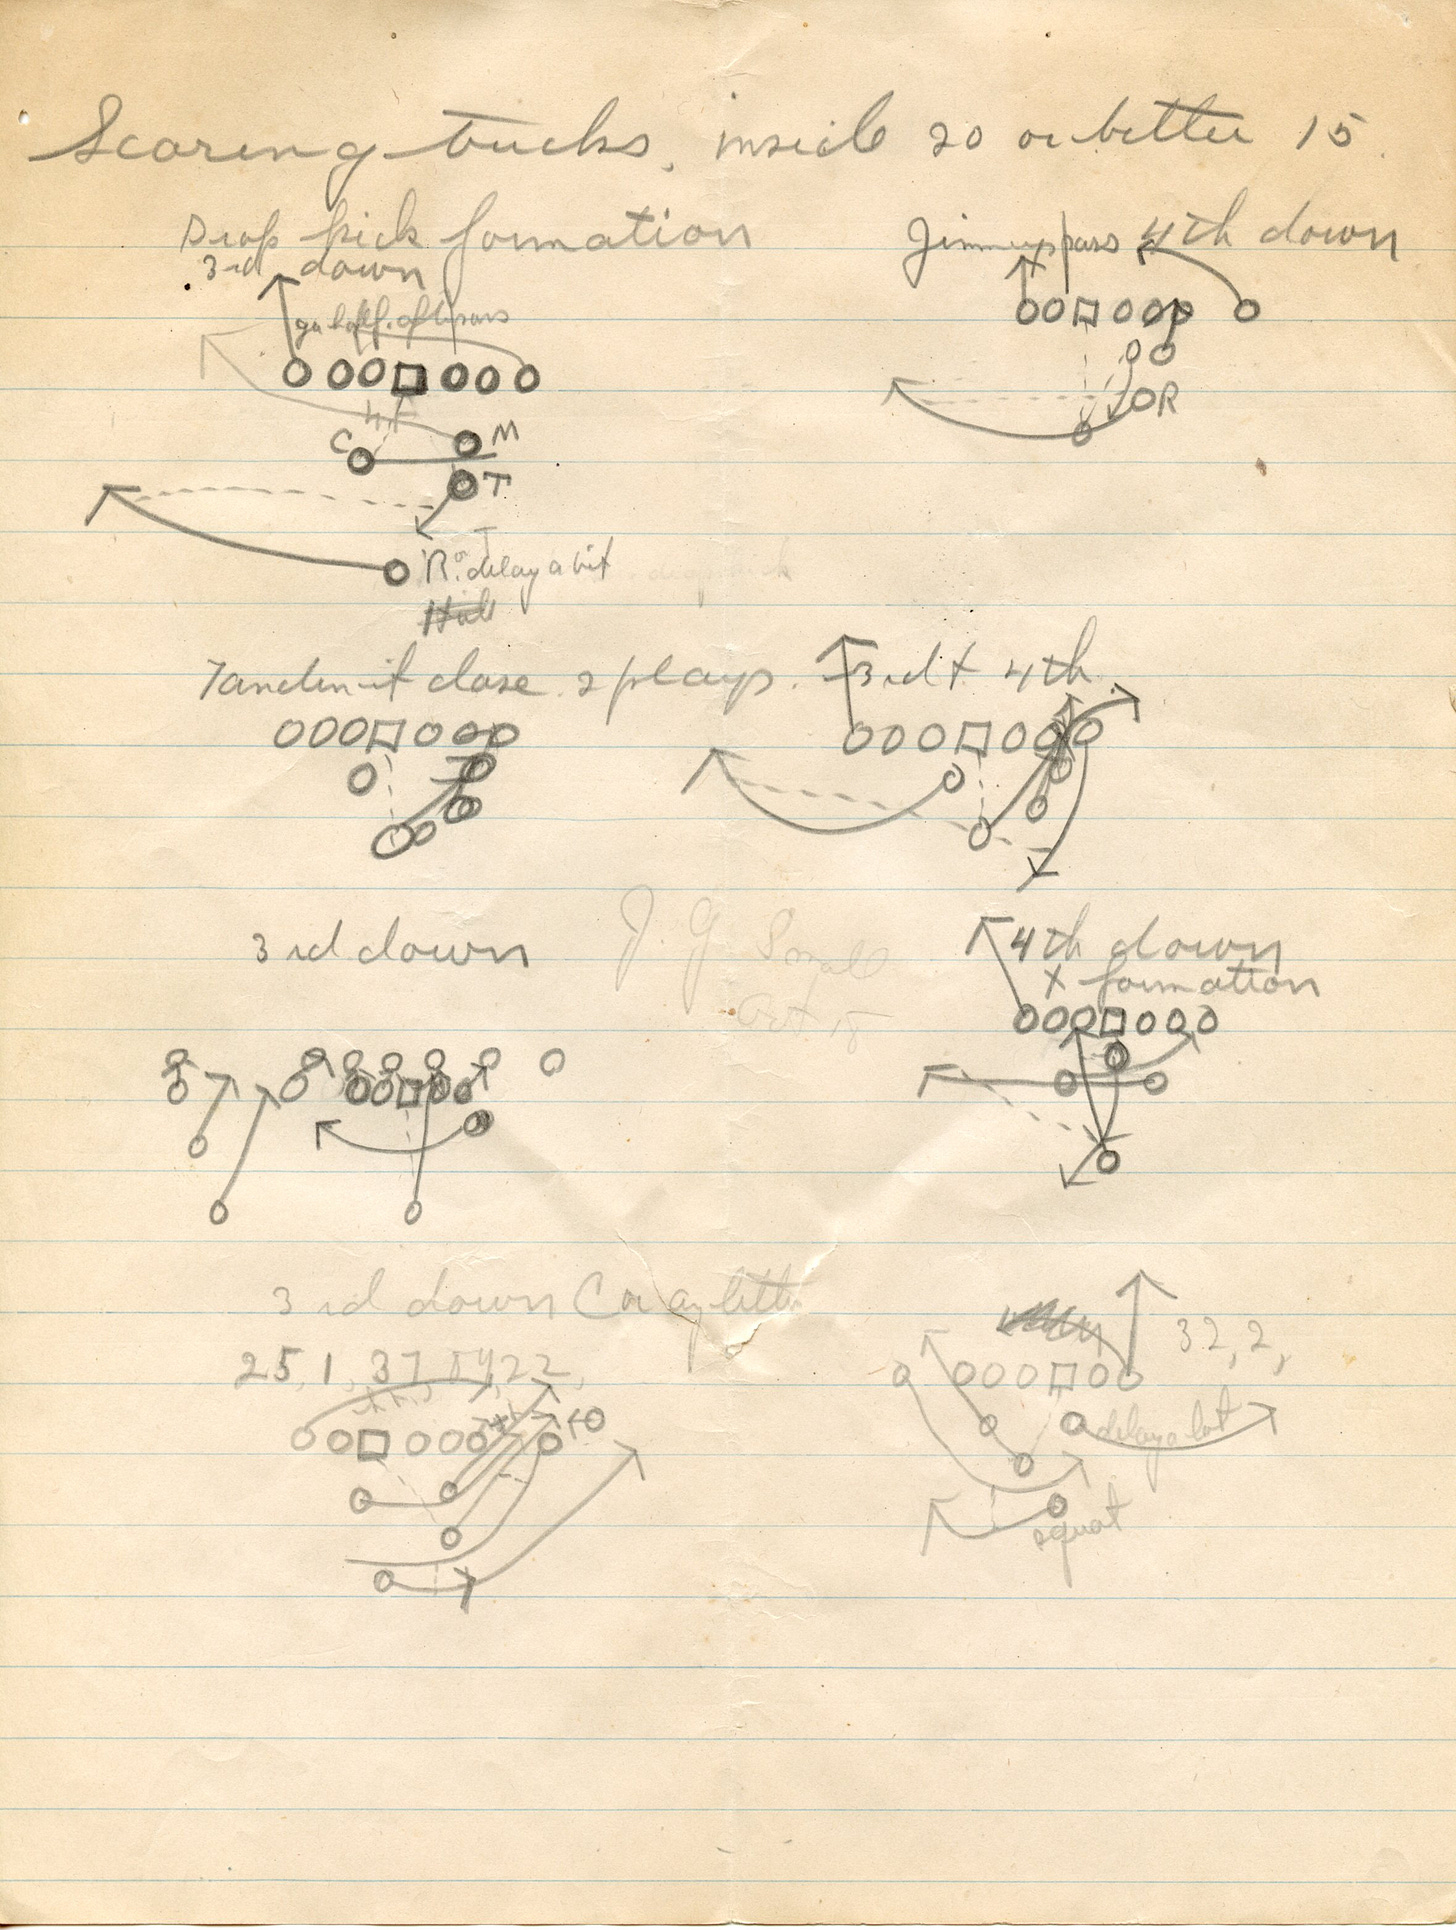 Scoring tricks, inside 20 or better 15.
Drop kick formation
3rd down
C
M
T
R. or T delay a bit
Jimmy pass 4th down
R
Tandem if close. 2 plays. 3rd + 4th
3rd down
J. G. Small
Oct 18
4th down
X formation
3rd down C or
25, 1, 37, 22,
32, 2,
delay a bit
squat